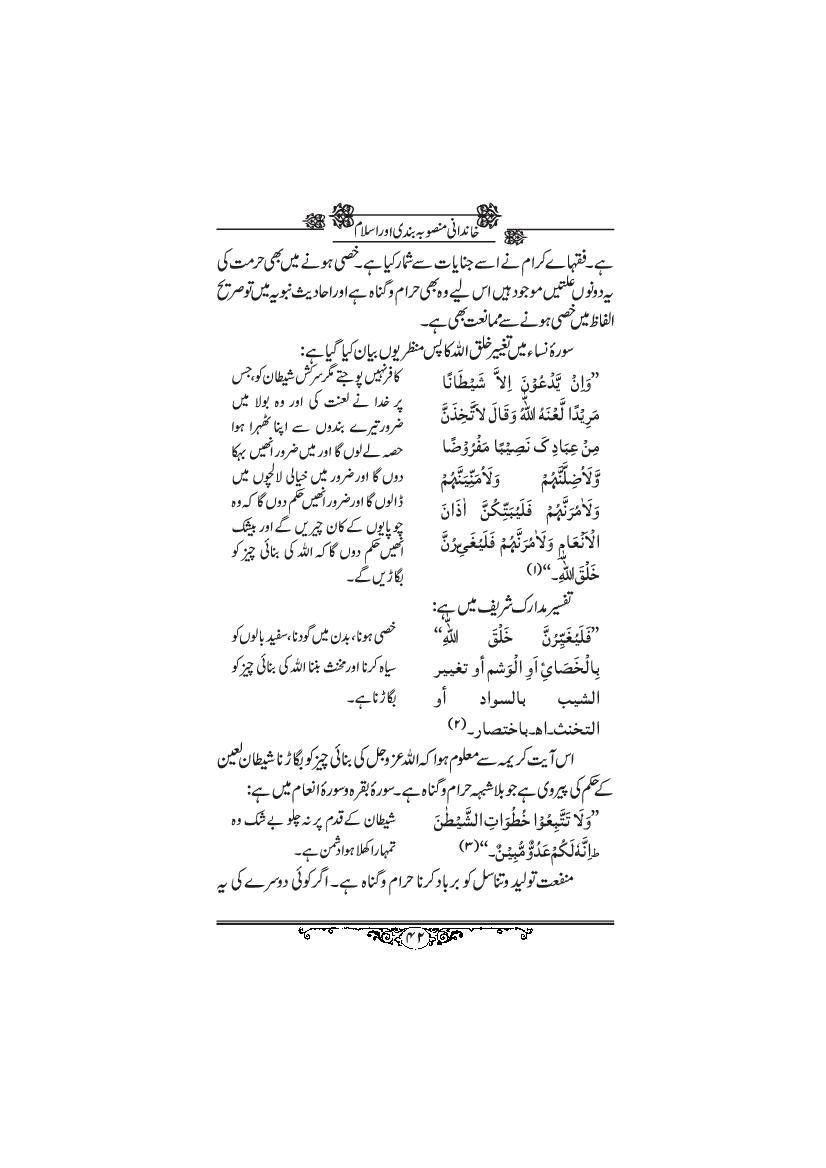 خاندانی منصوبہ بندی اور اسلام
ہے۔ فقہاے کرام نے اسے جنایات سے شمار کیا ہے۔ خصی ہونے میں بھی حرمت کی
یہ دونوں علتیں موجود ہیں اس لیے وہ بھی حرام و گناہ ہے اور احادیث نبویہ میں تو صریح
الفاظ میں خصی ہونے سے ممانعت بھی ہے۔
سورۂ نساء میں تغییر خلق اللہ کا پس منظر یوں بیان کیا گیا ہے:
”وَاِنْ یَّدْعُوْنَ اِلاَّ شَیْطَانًا
مَرِیْدًا لَّعْنَهُ اللّٰهُ وَقَالَ لاَتَّخِذَنَّ
مِنْ عِبَادِکَ نَصِیْبًا مَفْرُوْضًا
وَّلَاُضِلَّنَّہُمْ وَلَاُمَنِّیَنَّہُمْ
وَلَاٰمُرَنَّہُمْ فَلَیُبَتِّکُنَّ اٰذَانَ
الْاَنْعَامِ وَلَاٰمُرَنَّہُمْ فَلَیُغَیِّرُنَّ
خَلْقَ اللّٰهِ۔“(۱)
کافر نہیں پوجتے مگر سرکش شیطان کو، جس
پر خدا نے لعنت کی اور وہ بولا میں
ضرور تیرے بندوں سے اپنا ٹھہرا ہوا
حصہ لے لوں گا اور میں ضرور انھیں بہکا
دوں گا اور ضرور میں خیالی لالچوں میں
ڈالوں گا اور ضرور انھیں حکم دوں گا کہ وہ
چوپایوں کے کان چیریں گے اور بیشک
انھیں حکم دوں گا کہ اللہ کی بنائی چیز کو
بگاڑیں گے۔
تفسیر مدارک شریف میں ہے:
”فَلَیُغَیِّرُنَّ خَلْقَ اللّٰهِ“
بِالْخَصَائِ اَوِ الْوَشم أو تغییر
الشیب بالسواد أو
التخنث۔اھ۔باختصار۔(۲)
خصی ہونا، بدن میں گودنا، سفید بالوں کو
سیاہ کرنا اور مخنث بننا اللہ کی بنائی چیز کو
بگاڑنا ہے۔
اس آیت کریمہ سے معلوم ہوا کہ اللہ عزوجل کی بنائی چیز کو بگاڑنا شیطان لعین
کے حکم کی پیروی ہے جو بلا شبہہ حرام و گناہ ہے۔ سورۂ بقرہ و سورۂ انعام میں ہے:
”وَلَا تَتَّبِعُوْا خُطُوَاتِ الشَّیْطٰنَ
ط اِنَّهٗ لَکُمْ عَدُوٌّ مُّبِیْنٌ۔“(۳)
شیطان کے قدم پر نہ چلو بے شک وہ
تمہارا کھلا ہوا دشمن ہے۔
منفعت تولید و تناسل کو برباد کرنا حرام و گناہ ہے۔ اگر کوئی دوسرے کی یہ
۴۲